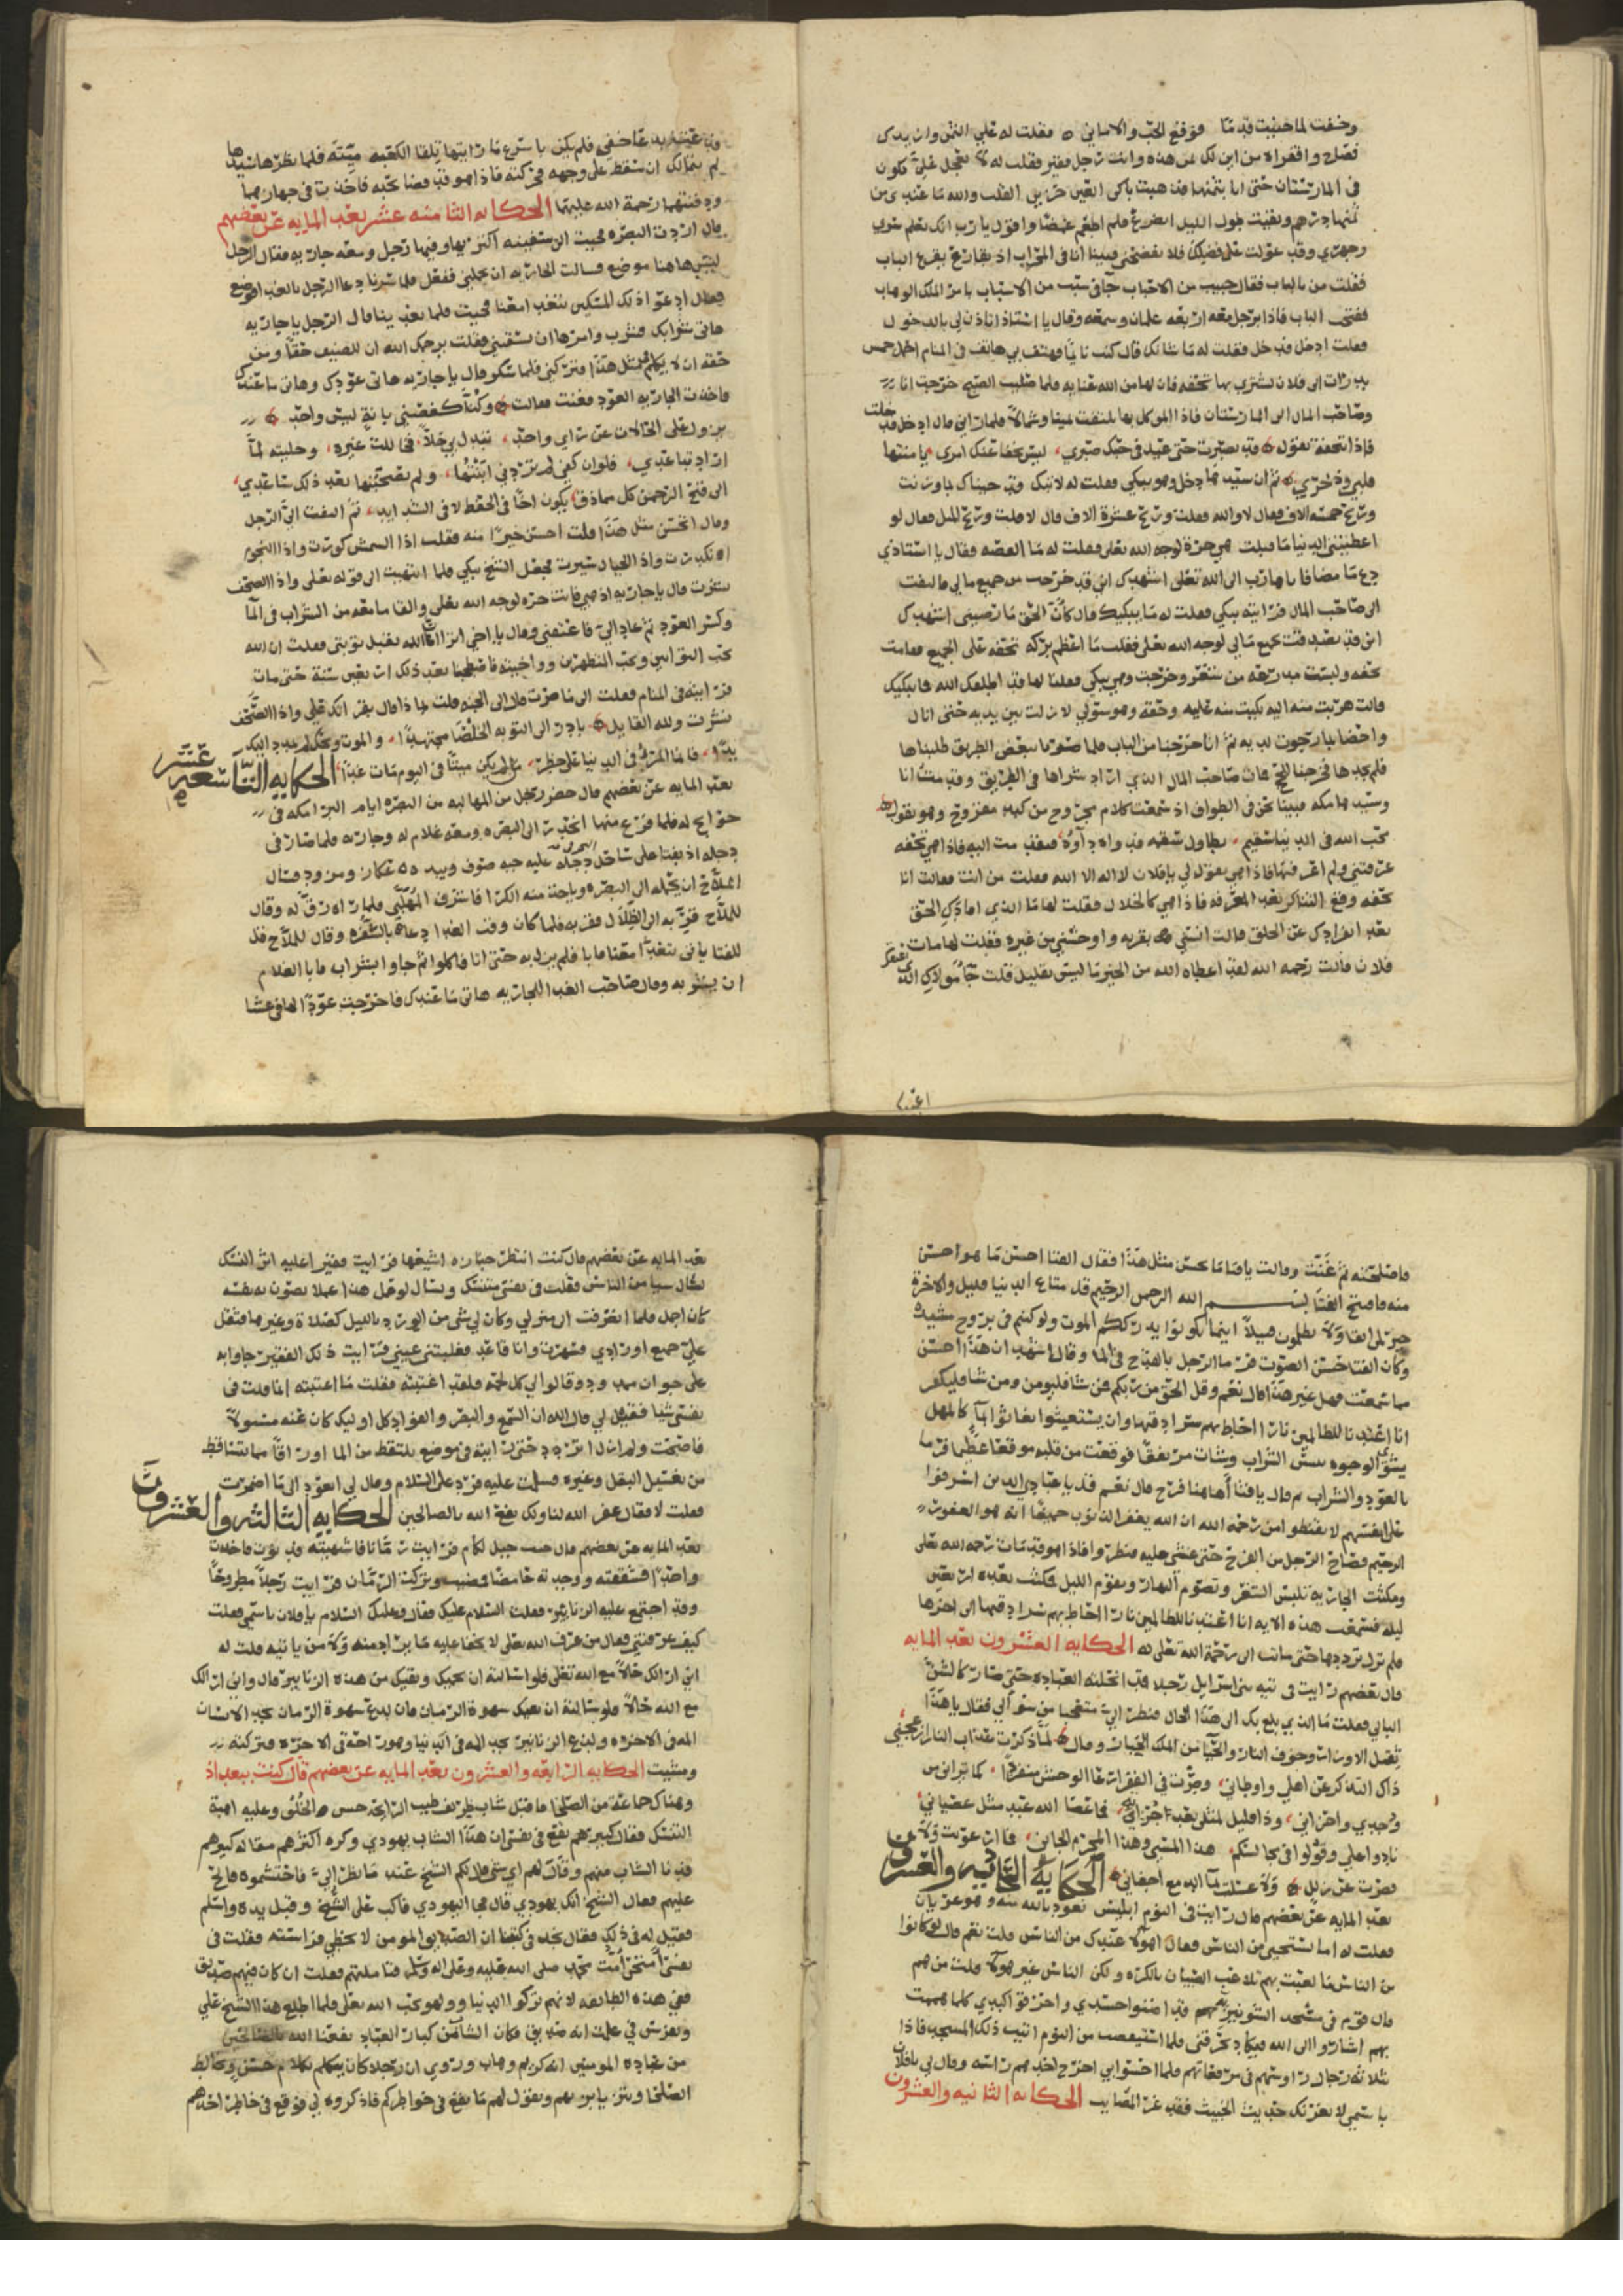 وخفت لما جنيت قدما فوقع الحب والاماني فقلت له علي الثمن وان يدك
فصاح وافقراه من اين لك ثمن هذه وانت رجل فقير فقلت له لا تعجل علي تكون
في المارستان حتى اتيا بثمنها ثم ذهبت باكي العين حزين القلب والله ما عندي من
ثمنها درهم وبقيت طول الليل اتضرع فلم اطعم غمضا واقول يا رب انك تعلم سري
وجهري وقد عولت على فضلك فلا تفضحني فبينا انا في المحراب اذ بقارع يقرع الباب
فقلت من بالباب فقال حبيب من الاحباب جا في سبب من الاسباب بامر الملك الوهاب
ففتحت الباب فاذا برجل معه اربعه غلمان وشمعه وقال يا استاذ اتاذن لي بالدخول
فقلت ادخل فدخل فقلت له ما شانك قال كنت نايما فهتف بي هاتف في المنام احمل خمس
بدرات الى فلان يشتري بها تحفه فان لها من الله عنايه فلما صليت الصبح خرجت انا
وصاحب المال الى المارستان فاذا الموكل بها يلتفت يمينا وشمالا فلما راني قال ادخل فدخلت
فاذا بتحفة تقول قد تصبرت حتى عيل في حبك صبري ليس يخفا عنك امري يا منتها
قلبي وذخري ثم ان سيدها دخل وهو يبكي فقلت له لا تبك وقد جيناك بما وزنت
وربح خمسه الاف فقال لا والله فقلت وربح عشرة الاف قال لا قلت وربح المثل فقال لو
اعطيتني الدنيا ما قبلت هي حرة لوجه الله تعلى فقلت له ما القصه فقال يا استاذي
الى صاحب المال فرايته يبكي فقلت له ما يبكيك قال كان الحق ما رضيني اشهدك
اني قد تصدقت بجميع مالي لوجه الله تعلى فقلت ما اعظم بركه تحفه على الجميع فقامت
تحفه ولبست مدرعه من شعر وخرجت وهي تبكي فقلنا لها قد اطلقك الله فما يبكيك
قالت هربت منه اليه بكيت منه عليه وحقه وهو سولي لا زلت بين يديه حتى انال
واحضا بما رجوت لديه ثم انا خرجنا من الباب فلما صرنا ببعض الطريق طلبناها
فلم نجدها فخرجنا للحج فمات صاحب المال الذي اراد شراها في الطريق وقدمت انا
وسيدها مكه فبينا نحن في الطواف اذ سمعت كلام مجروح من كبد مقروح وهو يقول
محب الله في الدنيا سقيم تطاول سقمه فدواه داوه فتقدمت اليه فاذا هي تحفه
عرفتني ولم اعرفها فاذا هي تقول لي يا فلان لا اله الا الله فقلت من انت فقالت انا
تحفه وقع التناكر بعد المعرفه فاذا هي كالخلال فقلت لها ما الذي افادك الحق
بعد انفرادك عن الخلق قالت انسني بقربه واوحشني من غيره فقلت لها مات
فلان قالت رحمه الله لقد اعطاه الله من الخير ما ليس بقليل فقلت جا مولاك الذي
اعتق
لم يتمالك ان سقط على وجهه فحركته فاذا هو قد قضا نحبه فاخذت في جهازهما
ودفنتهما رحمة الله عليهما الحكايه الثامنه عشر بعد المايه عن بعضهم
قال اردت البصره فجيت الى سفينه اكتريها وفيها رجل ومعه جاريه فقال الرجل
ليس هاهنا موضع فسالت الجاريه ان يحملني ففعل فلما سرنا دعا الرجل بالغدا فوضع
فقال ادعوا ذلك المسكين يتغدا معنا فجيت فلما تغدينا قال الرجل يا جاريه
هاتي شرابك فشرب وامرها ان تسقيني فقلت يرحمك الله ان للضيف حقا ومن
حقه ان لا يكلم مثل هذا فتركني فلما سكر قال يا جاريه هاتي عودك وهاتي ما عندك
فاخذت الجاريه العود فغنت فقالت وكنا كغصني بانة ليس واحد
يزول على الخالات عن راي واحد تبدل بي خلا فخاللت غيره وخليته لما
اراد تباعدي فلو ان كفي لم تردني ابنتها ولم تصحبنها بعد ذلك ساعدي
الى قبح الرحمن كل مماذق يكون اخا في الخفظ لا في الشدايد ثم التفت الي الرجل
وقال اتحسن مثل هذا قلت احسن خيرا منه فقلت اذا الشمش كورت واذا النجوم
انكدرت واذا الجبال سيرت فجعل الشيخ يبكي فلما انتهيت الى قوله تعلى واذا الصحف
نشرت قال يا جاريه اذهبي فانت حره لوجه الله تعلى والقا ما معه من الشراب في الما
وكسر العود ثم عاد الي فاعتنقني وقال يا اخي اترا الله يقبل توبتي فقلت ان الله
يحب التوابين ويحب المتطهرين وواخيته فاصطحبنا بعد ذلك اربعين سنة حتى مات
فرايته في المنام فقلت الى ما صرت قال الى الجنه قلت بماذا قال بقراتك علي واذا الصحف
نشرت ولله القايل بادر الى التوبه الخلصا مجتهدا والموت ويحك لم يمدد اليك
يدا فانما المرو في الدنيا على خطر ان لم يكن ميتا في اليوم مات غدا الحكايه التاسعه عشر
بعد المايه عن بعضهم قال حضر رجل من المهالبه من البصره ايام البرامكه في
حوايج له فلما فرغ منها انحدر الى البصره ومعه غلام له وجاريه فلما صار في
دجله اذ بفتا على ساحل دجله عليه جبه صوف وبيده عكاز ومزود فسال
الملاح ان يحمله الى البصره وياخذ منه الكرا فاشرف المهلبي فلما راه رق له وقال
للملاح قربه الى الظلال فقربه فلما كان وقت الغدا دعا بالسفره وقال للملاح قل
للفتا ياتي يتغدا معنا فابا فلم يزل به حتى اتا فاكلوا ثم جاوا بشراب فابا الغلام
ان يشربه وقال صاحب الغدا للجاريه هاتي ما عندك فاخرجت عودا لها في عشا
فاصلحته ثم غنت وقالت يا فتا ما تحسن مثل هذا فقال الفتا احسن ما هو احسن
منه فافتتح الفتا بسم الله الرحمن الرحيم قل متاع الدنيا قليل والاخرة
خير لمن اتقا ولا تظلمون فتيلا اينما تكونوا يدرككم الموت ولو كنتم في بروج مشيدة
وكان الفتا حسن الصوت فرما الرجل بالقدح في الما وقال اشهد ان هذا احسن
مما سمعت فهل غير هذا قال نعم وقل الحق من ربكم فمن شا فليومن ومن شا فليكفر
انا اعتدنا للظالمين نارا احاط بهم سرادقها وان يستغيثوا يغاثوا بما كالمهل
يشوي الوجوه بيس الشراب وسات مرتفقا فوقعت من قلبه موقعا عظيما فرما
بالعود والشراب ثم قال يا فتا اهاهنا فرج قال نعم قل يا عبادي الذين اسرفوا
على انفسهم لا تقنطوا من رحمة الله ان الله يغفر الذنوب جميعا انه هو الغفور
الرحيم فصاح الرجل من الفرح حتى غشي عليه فنظروا فاذا هو قد مات رحمه الله تعلى
ومكثت الجاريه تلبس الشعر وتصوم النهار وتقوم الليل فمكثت بعده اربعين
ليله فسمعت هذه الايه انا اعتدنا للظالمين نارا احاط بهم سرادقها الى اخرها
فلم تزل ترددها حتى ماتت الى رحمة الله تعلى له الحكايه العشرون بعد المايه
قال بعضهم رايت في تيه بني اسرايل رجلا قد انحلته العباده حتى صار كالشن
البالي فقلت ما الذي بلغ بك الى هذا الحال فنظر الي متعجبا من سوالي فقال يا هذا
ثقل الاوزار وخوف النار والحيا من الملك الجبار وقال لما ذكرت عذاب النار ازعجني
ذاك التذكر عن اهلي واوطاني وصرت في القفر ارعا الوحش منفردا كما تراني من
وجدي واحزاني وذا قليل لمثلي بعد اجراي فما عصا الله عبد مثل عصياني
نادوا علي وقولوا في مجالسكم هذا المسي وهذا المجرم الجاني فما ارعويت ولا
قصرت عن زللي ولا غسلت بما الدمع اجفاني الحكاية الحادية والعشرون
بعد المايه عن بعضهم قال رايت في النوم ابليس نعوذ بالله منه وهو عريان
فقلت له اما تستحيي من الناس فقال اهولا عندك من الناس قلت نعم قال لو كانوا
من الناس ما لعبت بهم تلاعب الصبيان بالكره ولكن الناس غير هولا قلت من هم
قال قوم في مسجد الشونيزيه هم قد اضنوا جسدي واحرقوا كبدي كلما هممت
بهم اشاروا الى الله فيكاد يحرقني فلما استيقضت من النوم اتيت ذلك المسجد فاذا
ثلاثه رجال رووسهم في مرقعاتهم فلما احسوا بي اخرج احدهم راسه وقال لي يا فلان
يا سمي لا يغرنك حديث الخبيث فقد غر المصايب الحكايه الثانيه والعشرون
بعد المايه عن بعضهم قال كنت انتظر جنازه اشيعها فرايت فقيرا عليه اثر النسك
يسال شيا من الناس فقلت في نفسي متنسك ويسال لو عمل هذا عملا يصون به نفسه
كان اجمل فلما انصرفت الى منزلي وكان لي شي من الورد بالليل كصلاة وغيرها فثقل
علي جميع اورادي فسهرت وانا قاعد فغلبتني عيني فرايت ذلك الفقير جاوا به
على خوان ممدود وقالوا لي كل لحمه فلقد اغتبته فقلت ما اغتبته انما قلت في
نفسي شيا فقيل لي قال الله ان السمع والبصر والفواد كل اوليك كان عنه مسئولا
فاصبحت ولم ازل اتردد حتى رايته في موضع يلتقط من الما اوراقا مما يتساقط
من تغسيل البقل وغيره فسلمت عليه فرد علي السلام وقال لي اتعود الى ما اضمرت
فقلت لا فقال غفر الله لنا ولك نفع الله بالصالحين الحكايه الثالثه والعشرون
بعد المايه عن بعضهم قال جيت جبل لكام فرايت رمانا فاشتهيته فدنوت فاخذت
واحدا فشققته ووجدته حامضا فمضيت وتركت الرمان فرايت رجلا مطروحا
وقد اجتمع عليه الزنابير فقلت السلام عليك فقال وعليك السلام يا فلان باسمي فقلت
كيف عرفتني فقال من عرف الله تعلى لا يخفا عليه ما يراد منه ولا من ياتيه قلت له
اني ارا لك حالا مع الله تعلى فلو سالته ان يحميك ويقيك من هذه الزنابير قال واني ارا لك
مع الله حالا فلو سالته ان يقيك شهوة الرمان فان لدغ شهوة الرمان يجد الانسان
المه في الاخره ولدغ الزنابير يجد المه في الدنيا وهو راحة في الاخره فتركته
ومشيت الحكايه الرابعه والعشرون بعد المايه عن بعضهم قال كنت ببغداذ
وهناك جماعة من الصلحا فاقبل شاب ظريف طيب الرايحه حسن الخلق وعليه اهبة
التنسك فقال كبيرهم يقع في نفسي ان هذا الشاب يهودي وكره اكثرهم مقاله كبيرهم
فدنا الشاب منهم وقال لهم اي شي قال لكم الشيخ عند ما نظر الي فاحتشموه فالح
عليهم فقال الشيخ انك يهودي قال فجا اليهودي فاكب على الشيخ وقبل يده واسلم
فقيل له في ذلك فقال نجد في كتبنا ان الصديق المومن لا تخطي فراسته فقلت في
نفسي امتحن امة محمد صلى الله عليه وعلى اله وسلم فتاملتهم فقلت ان كان فيهم صديق
ففي هذه الطايفه لانهم تركوا الدنيا وولهو بحب الله تعلى فلما اطلع هذا الشيخ علي
وتفرس في علمت انه صديق فكان الشاب من كبار العباد نفعنا الله بالصالحين
من عباده المومنين انه كريم وهاب وروي ان رجلا كان يتكلم بكلام حسن ويخالط
الصلحا ويتزيا بزيهم ويقول لهم ما يقع في خواطركم فاذكروه لي فوقع في خاطر احدهم